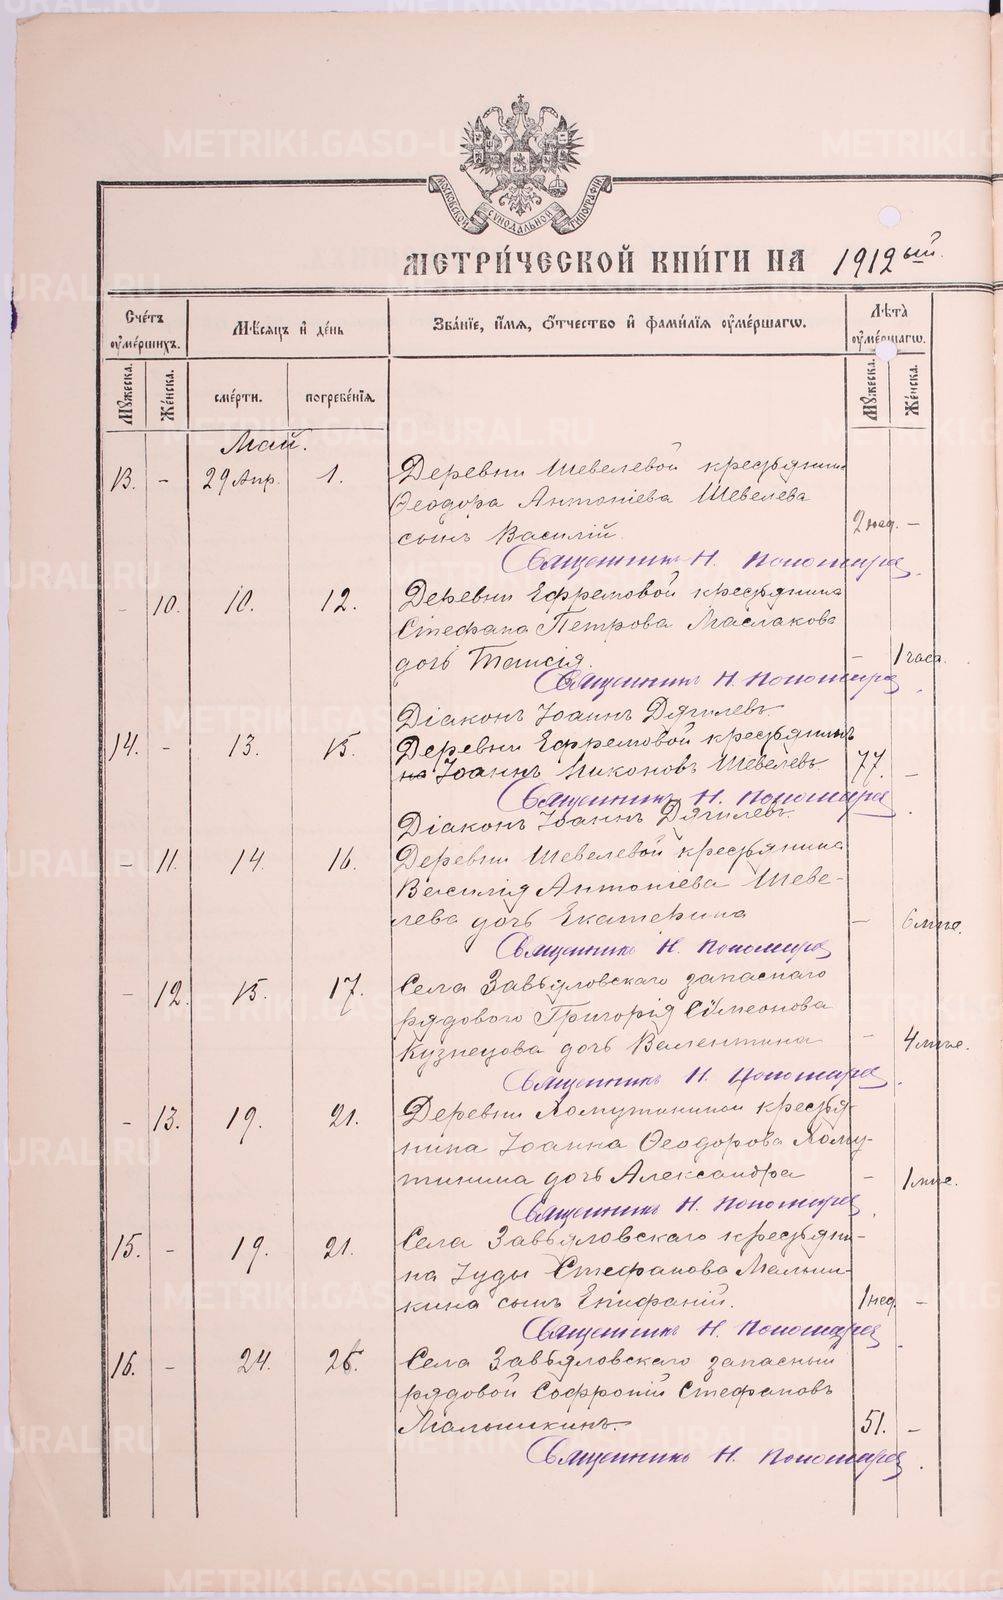 МОСКОВСКОЙ СѴНОДАЛЬНОЙ ТИПОГРАФІИ
МЕТРИ́ЧЕСКОЙ КНИ́ГИ НА 1912ый.
Сче́тъ ᲂу҆ме́ршихъ.
Мѣ́сяцъ и҆ де́нь
Зва́нїе, и҆́мѧ, ѻ҆́тчество и҆ фами́лїѧ ᲂу҆ме́ршагѡ.
Лѣта̀ ᲂу҆ме́ршагѡ.
Мꙋ́жеска.
Же́нска.
сме́рти.
погребе́нїѧ
Мꙋ́жеска.
Же́нска.
Май.
13. - 29 Апр. 1. Деревни Шевелевой крестьянина
Ѳеодора Антоніева Шевелева
сынъ Василій. 2 нед. -
Священникъ Н. Пономарев.
- 10. 10. 12. Деревни Ефремовой крестьянина
Стефана Петрова Маслакова
дочь Таисія. - 1 часа.
Священникъ Н. Пономарев.
Діаконъ Іоаннъ Дягилевъ.
14. - 13. 15. Деревни Ефремовой крестьянинъ
на Іоаннъ Никоновъ Шевелевъ. 77. -
Священникъ Н. Пономарев.
Діаконъ Іоаннъ Дягилевъ.
- 11. 14. 16. Деревни Шевелевой крестьянина
Василія Антоніева Шеве-
лева дочь Екатерина - 6 мѣс.
Священникъ Н. Пономарев
- 12. 15. 17. Села Завьяловскаго запаснаго
рядового Григорія Сѵмеонова
Кузнецова дочь Валентина - 4 мѣс.
Священникъ Н. Пономарев.
- 13. 19. 21. Деревни Хомутининой крестья-
нина Іоанна Ѳеодорова Хому-
тинина дочь Александра - 1 мѣс.
Священникъ Н. Пономарев.
15. - 19. 21. Села Завьяловскаго крестьяни-
на Іуды Стефанова Малыш-
кина сынъ Епифаній. 1 нед. -
Священникъ Н. Пономарев.
16. - 24. 26. Села Завьяловскаго запасный
рядовой Софроній Стефановъ
Малышкинъ. 51. -
Священникъ Н. Пономарев.
METRIKI.GASO-URAL.RU